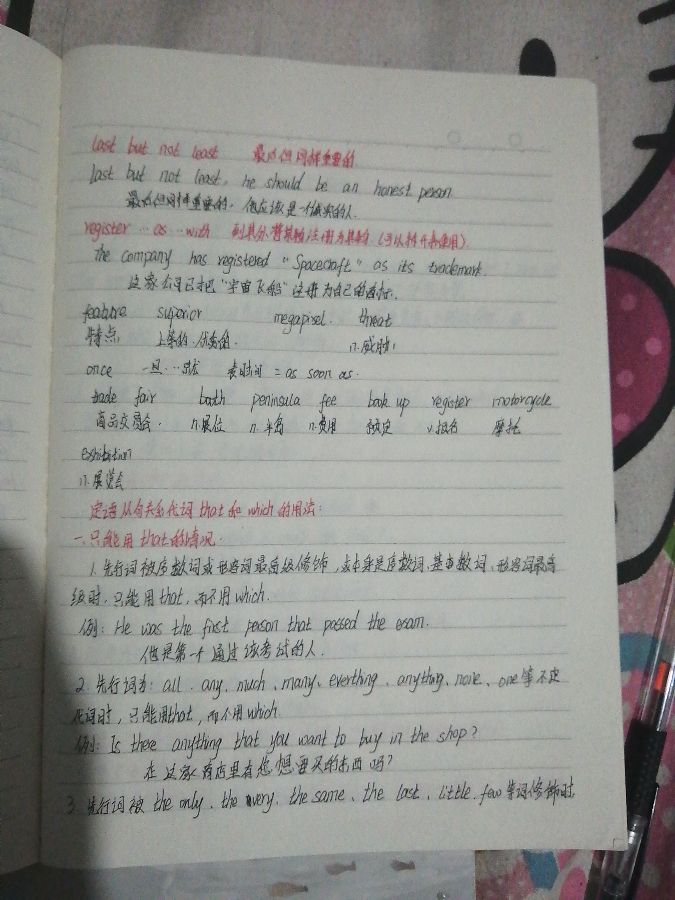 last but not least 最后但同样重要的
last but not least, he should be an honest person.
最后但同样重要的，他应该是一个诚实的人.
register … as … with 注册为 (可以拆开来使用)
the company has registered "Spacecraft" as its trademark.
这家公司已把"宇宙飞船"注册为自己的商标.
feature superior megapixel. threat
特点 上等的.优质的. n.威胁
once 一旦…就 表时间 = as soon as.
trade fair booth peninsula fee book up register motorcycle
商品交易会. n.展位 n.半岛 n.费用 预定 v.报名 摩托
exhibition
n.展览会
定语从句关系代词 that 和 which 的用法:
一.只能用 that 的情况.
1. 先行词被序数词或形容词最高级修饰,或本身是序数词.基数词.形容词最高
级时,只能用 that, 而不用 which.
例: He was the first person that passed the exam.
他是第一个通过该考试的人.
2. 先行词为: all. any、much、many、everthing、anything、none、one 等不定
代词时,只能用that,而不用which
例: Is there anything that you want to buy in the shop?
在这家商店里有你想要买的东西吗?
3. 先行词被 the only、the very、the same、the last、little.few 等词修饰时